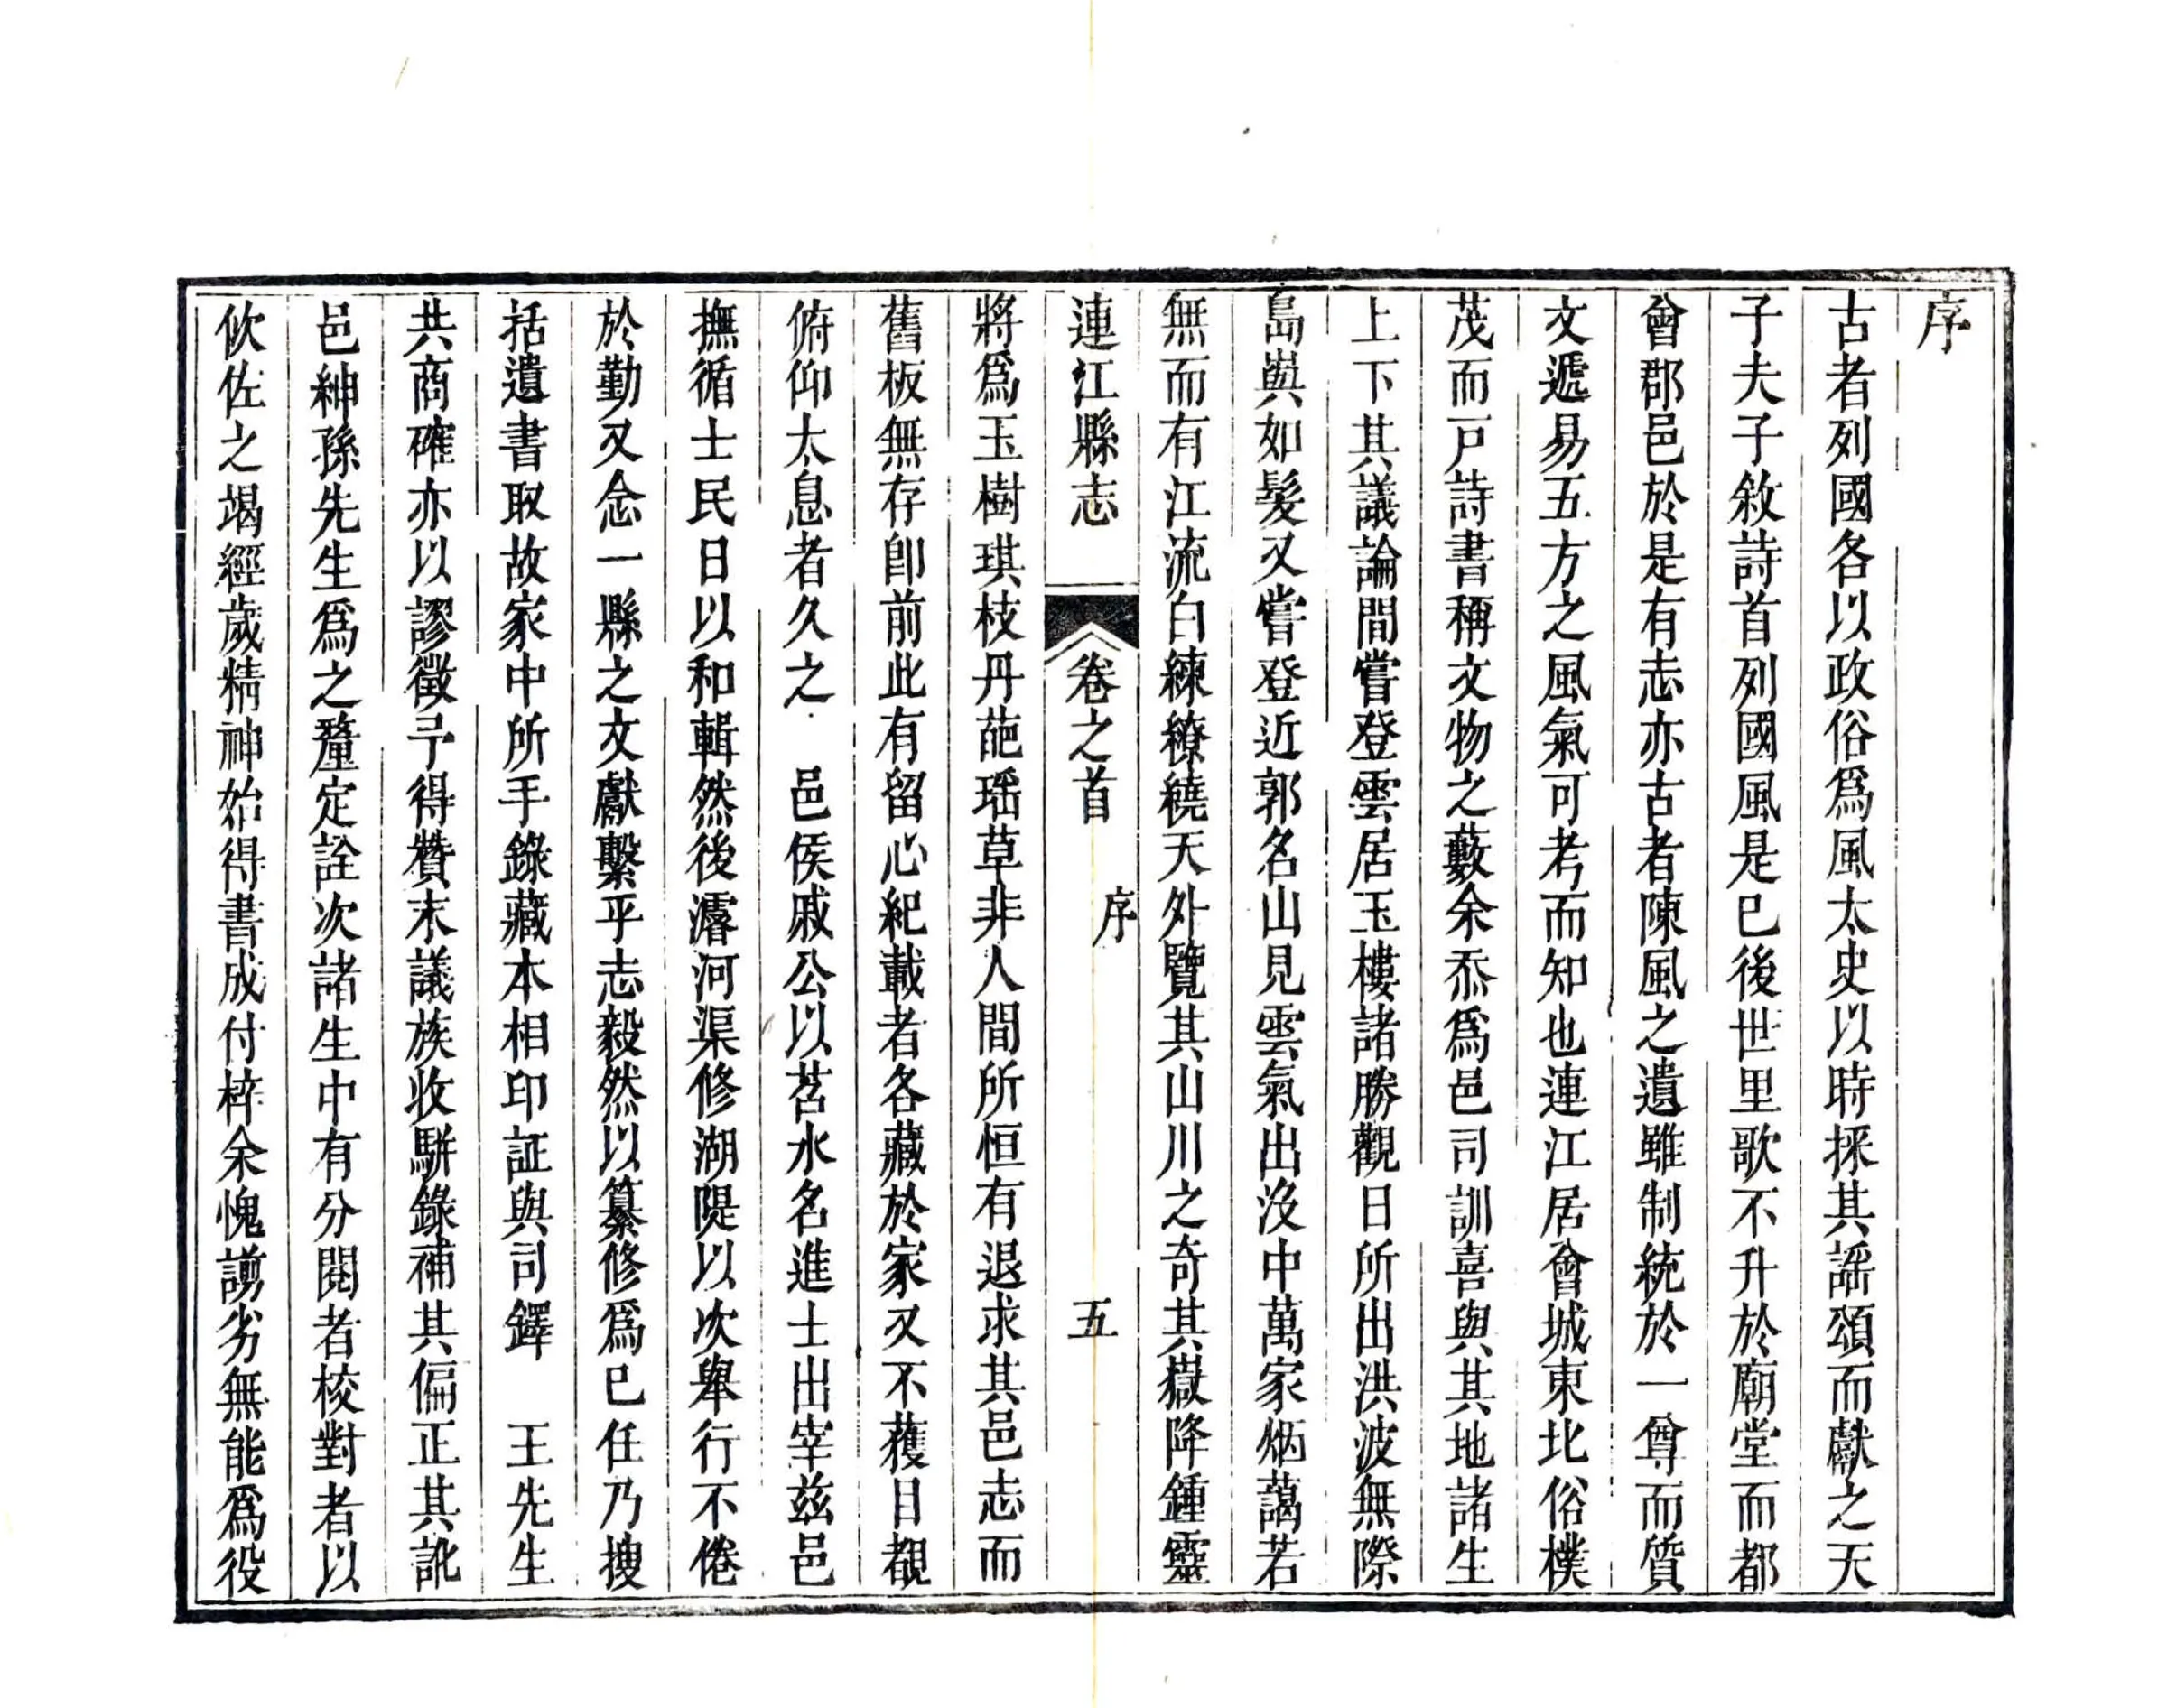 序
古者列國各以政俗爲風太史以時採其謡頌而獻之天
子夫子敘詩首列國風是已後世里歌不升於廟堂而都
會郡邑於是有志亦古者陳風之遺雖制統於一尊而質
文遞易五方之風氣可考而知也連江居會城東北俗樸
茂而戸詩書稱文物之藪余忝爲邑司訓喜與其地諸生
上下其議論間嘗登雲居玉樓諸勝觀日所出洪波無際
島嶼如髪又嘗登近郭名山見雲氣出没中萬家烟藹若
無而有江流白練繚繞天外覽其山川之奇其嶽降鍾靈
連江縣志 卷之首 序 五
將爲玉樹琪枝丹葩瑶草非人間所恒有退求其邑志而
舊板無存卽前此有留心紀載者各藏於家又不獲目覩
俯仰太息者久之 邑侯戚公以苕水名進士出宰兹邑
撫循士民日以和輯然後濬河渠修湖隄以次舉行不倦
於勤又念一縣之文獻繫乎志毅然以纂修爲已任乃搜
括遺書取故家中所手錄藏本相印証與司鐸 王先生
共商確亦以謬徵予得贊末議族收駢錄補其偏正其訛
邑紳孫先生爲之釐定詮次諸生中有分閱者校對者以
佽佐之竭經歲精神始得書成付梓余愧謭劣無能爲役